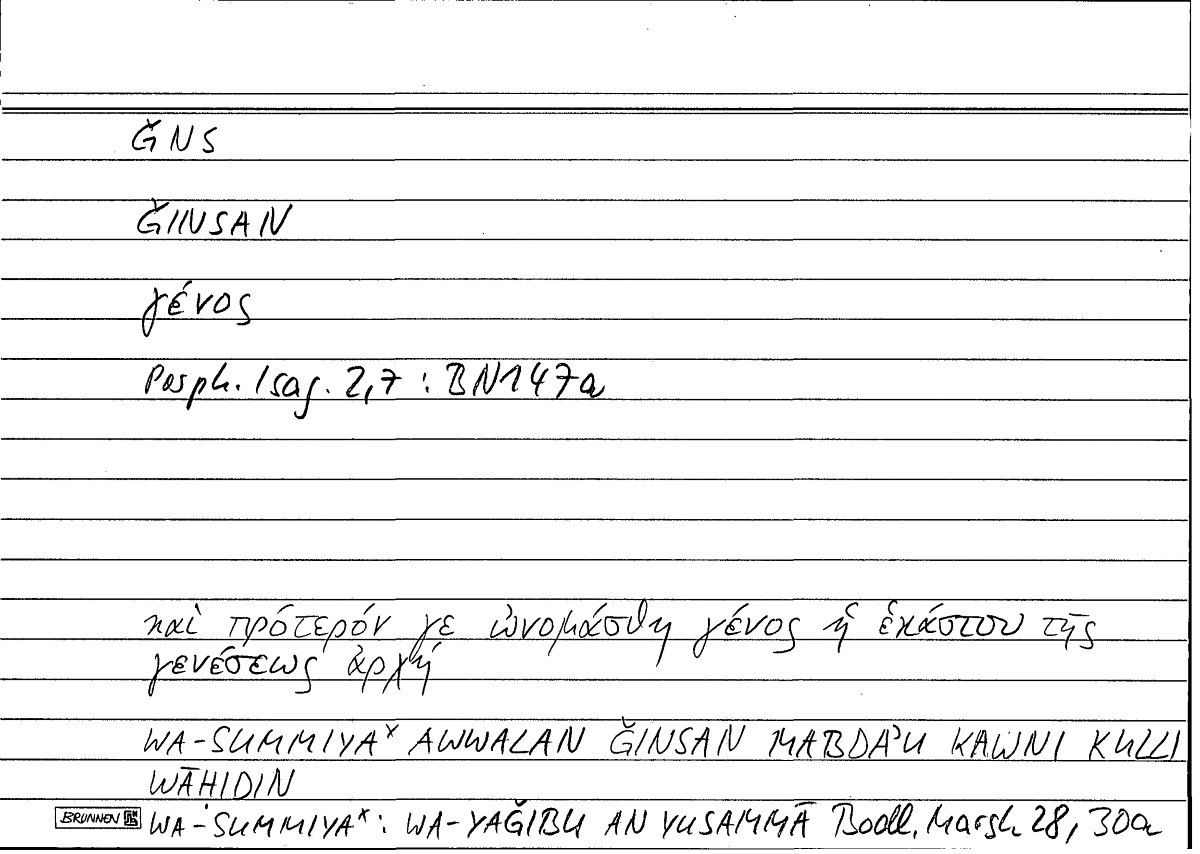 ǦNS
ǦINSAN
γένος
Porph. Isag. 2,7 : BN147a
καὶ πρότερόν γε ὠνομάσθη γένος ἡ ἑκάστου τῆς
γενέσεως ἀρχή
WA-SUMMIYAˣ AWWALAN ǦINSAN MABDAʾU KAWNI KULLI
WĀḤIDIN
BRUNNEN WA-SUMMIYAˣ: WA-YAǦIBU AN YUSAMMĀ Bodl. Marsh 28, 30a